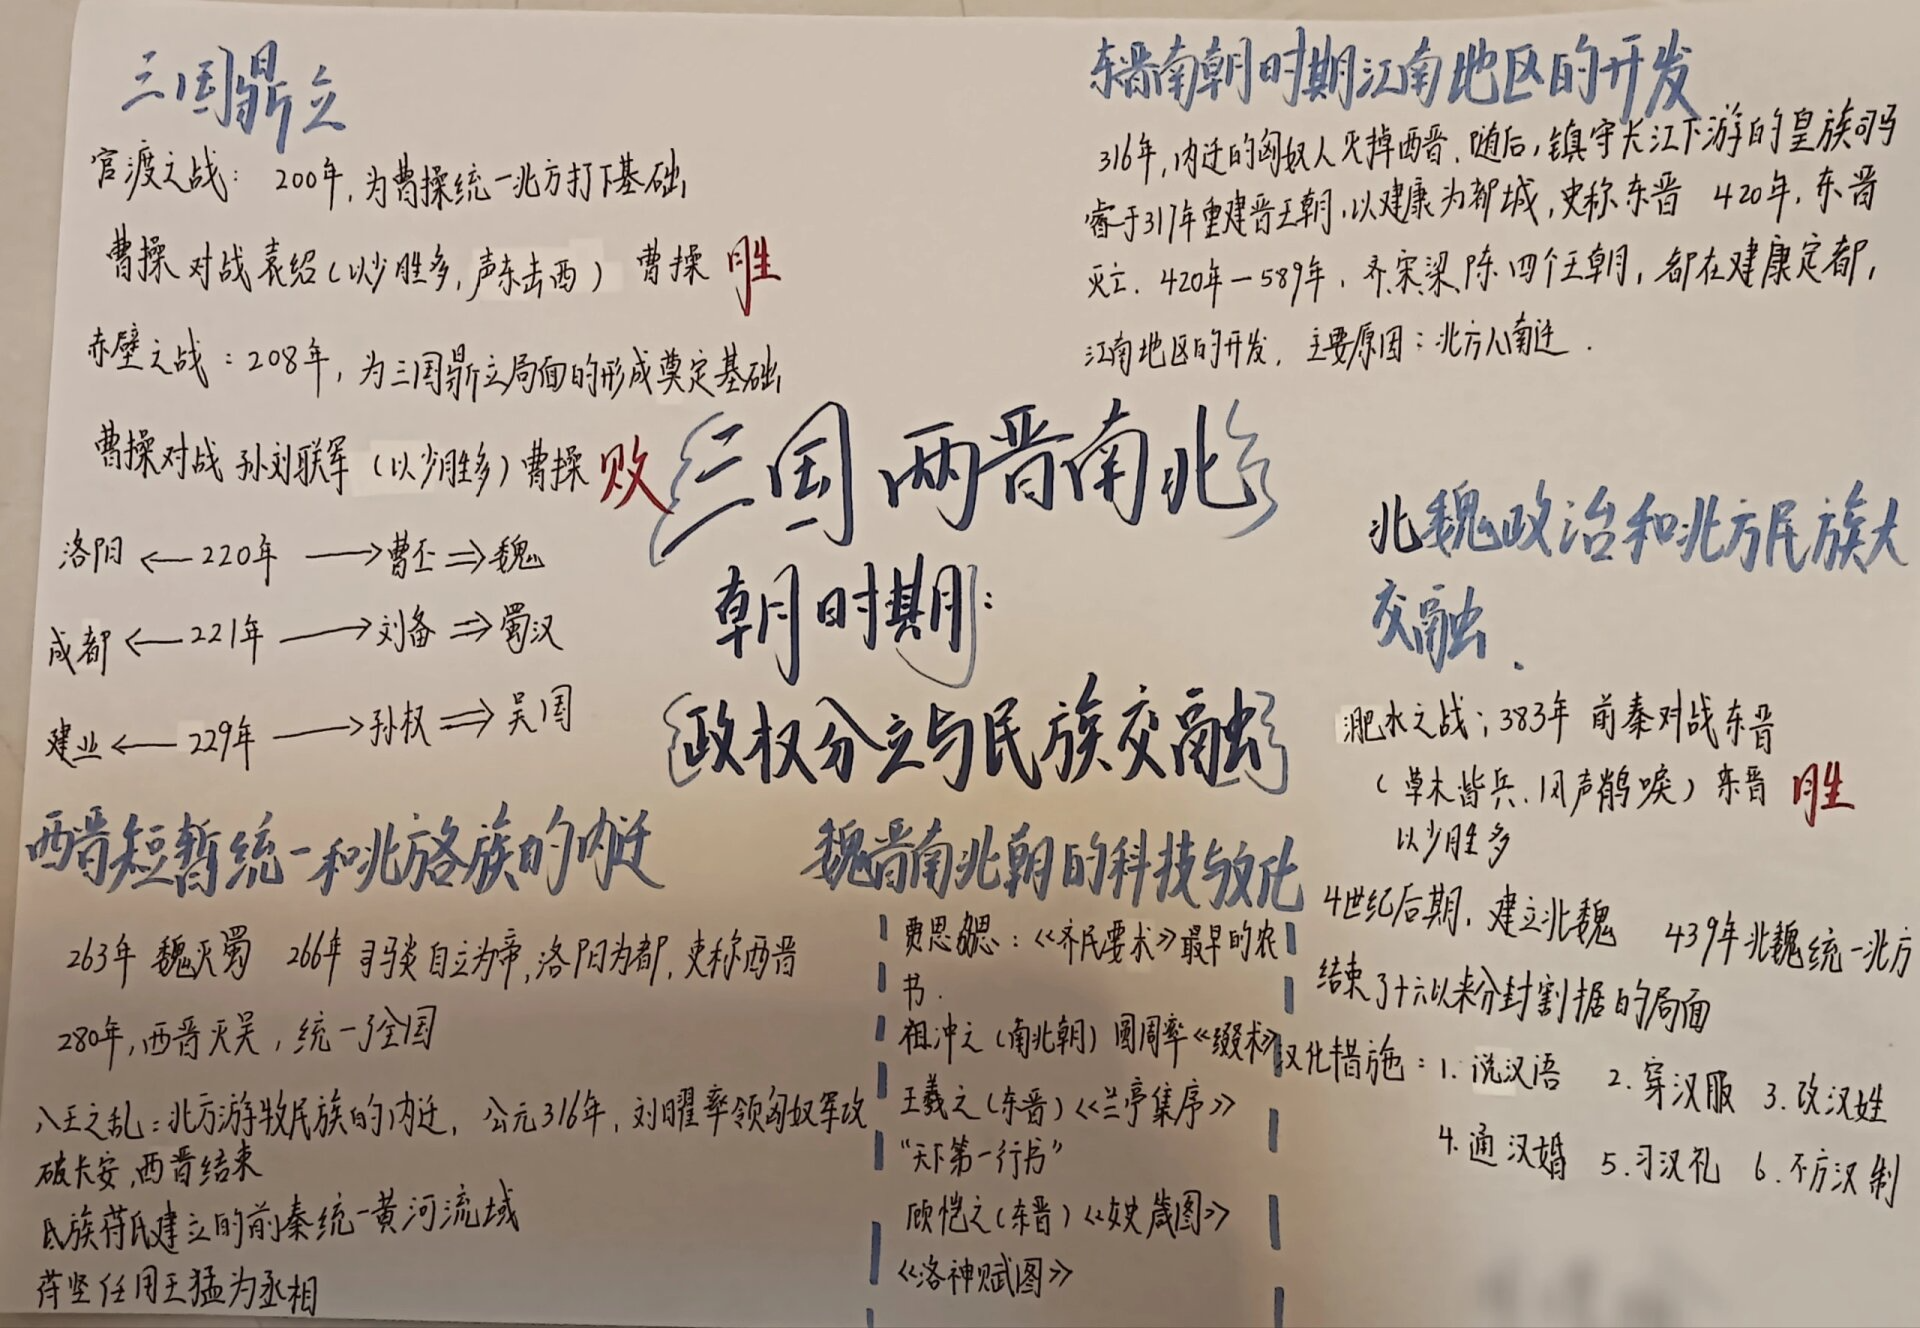 三国鼎立
官渡之战：200年，为曹操统一北方打下基础
曹操对战袁绍（以少胜多，声东击西）曹操 胜
赤壁之战：208年，为三国鼎立局面的形成奠定基础
曹操对战 孙刘联军（以少胜多）曹操 败
洛阳 ← 220年 → 曹丕 ⇒ 魏
成都 ← 221年 → 刘备 ⇒ 蜀汉
建业 ← 229年 → 孙权 ⇒ 吴国
三国两晋南北
朝时期：
政权分立与民族交融
东晋南朝时期江南地区的开发
316年，内迁的匈奴人灭掉西晋．随后，镇守长江下游的皇族司马
睿于317年重建晋王朝，以建康为都城，史称东晋 420年，东晋
灭亡．420年—589年，齐、宋、梁、陈四个王朝，都在建康定都，
江南地区的开发，主要原因：北方人南迁．
北魏政治和北方民族大
交融．
淝水之战；383年 前秦对战东晋
（草木皆兵、风声鹤唳）东晋 胜
以少胜多
4世纪后期，建立北魏 439年北魏统一北方
结束了十六以来分封割据的局面
汉化措施：1.说汉语 2.穿汉服 3.改汉姓
4.通汉婚 5.习汉礼 6.汉制
西晋短暂统一和北方各族的内迁
263年 魏灭蜀 266年 司马炎自立为帝，洛阳为都，史称西晋
280年，西晋灭吴，统一了全国
八王之乱：北方游牧民族的内迁，公元316年，刘曜率领匈奴军攻
破长安，西晋结束
氐族苻氏建立的前秦统一黄河流域
苻坚任用王猛为丞相
魏晋南北朝的科技与文化
贾思勰：《齐民要术》最早的农
书．
祖冲之（南北朝）圆周率《缀术》
王羲之（东晋）《兰亭集序》
“天下第一行书”
顾恺之（东晋）《女史箴图》
《洛神赋图》